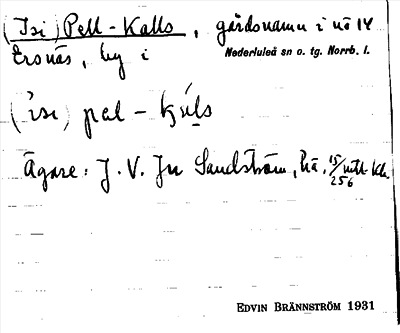 (Isi) Pell-Kalls, gårdsnamn i nö 14
Ersnäs, by i Nederluleå sn o. tg. Norrb. l.
(ɩsi) pɛl - kʒuls
Ägare: J. V. Jn Sandström, hä. 15/256 mtl
EDVIN BRÄNNSTRÖM 1931